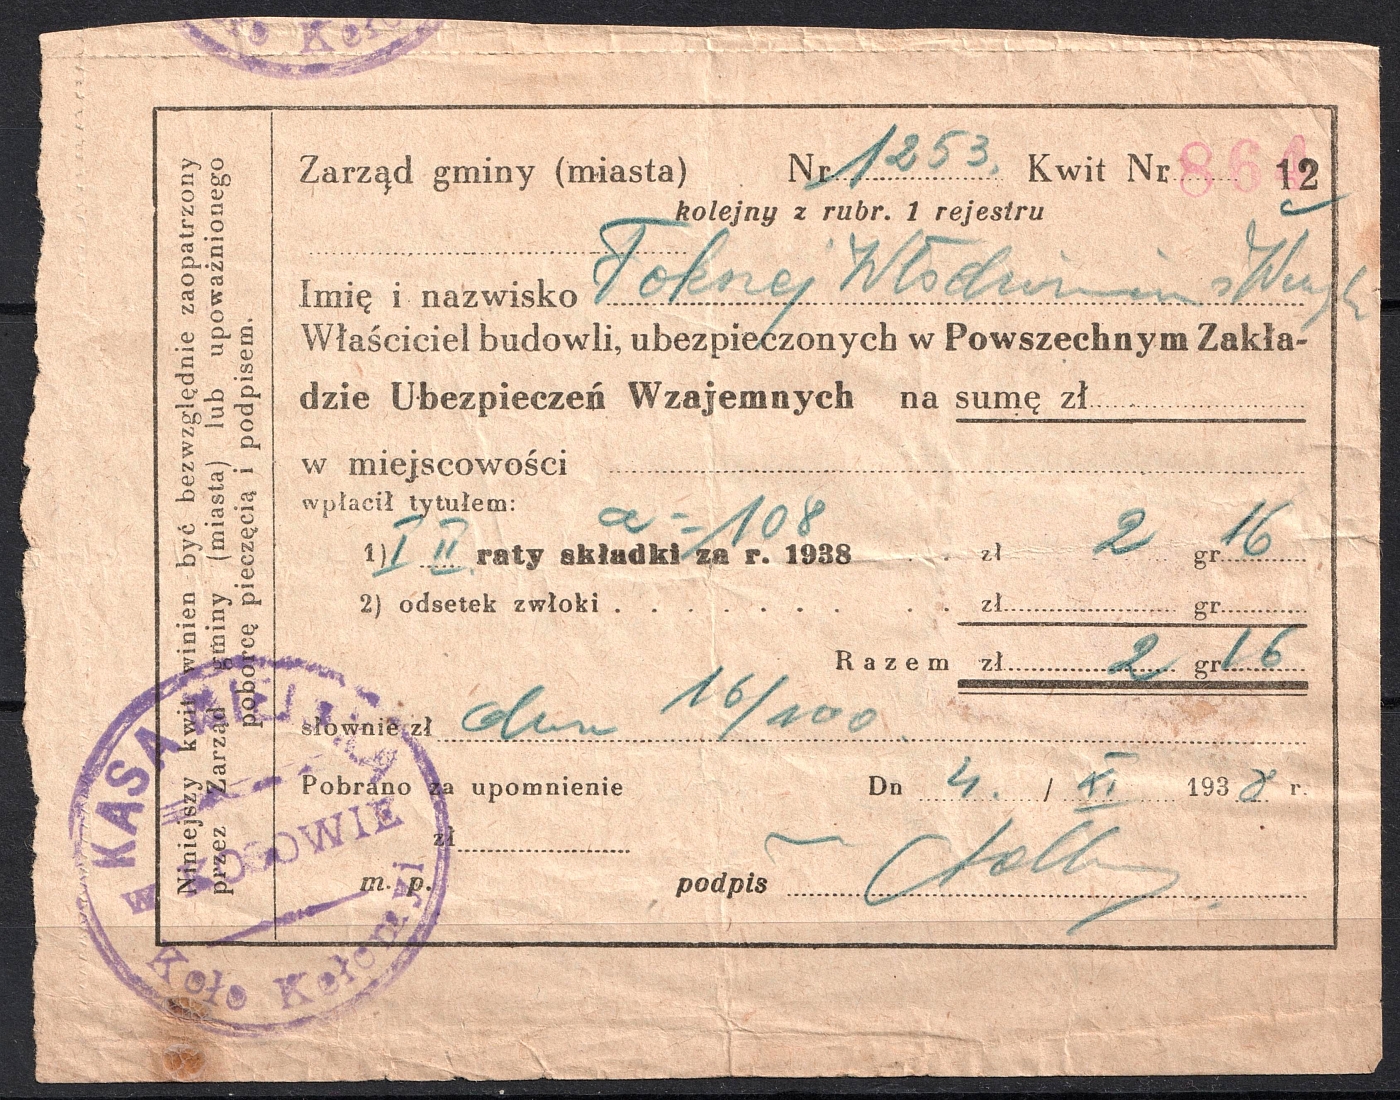 Koło Koło
Zarząd gminy (miasta) Nr 1253. Kwit Nr 864 12
kolejny z rubr. 1 rejestru
Imię i nazwisko
Właściciel budowli, ubezpieczonych w Powszechnym Zakła-
dzie Ubezpieczeń Wzajemnych na sumę zł
w miejscowości
wpłacił tytułem:
a = 108
1) I II raty składki za r. 1938 zł 2 gr 16
2) odsetek zwłoki zł gr
Razem zł 2 gr 16
słownie zł dwa 16/100
Pobrano za upomnienie Dn 4. / XI 1938 r.
zł
m. p. podpis
Niniejszy kwit winien być bezwzględnie zaopatrzony
przez Zarząd gminy (miasta) lub upoważnionego
poborcę pieczęcią i podpisem.
KASA
w KOSOWIE
Koło Kołomyi